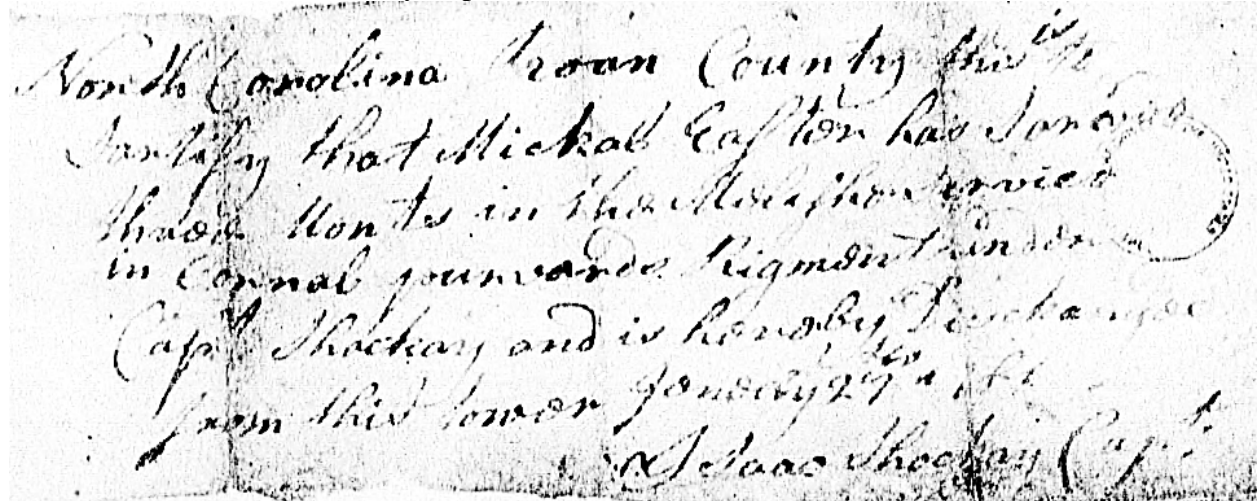 North Carolina Rowan County this is to
Sartify that Mickal Easter has Sarved
three Monts in the Melisho Service
in Cornal yourvards Rigment under
Capt. Shockay and is hereby Discharged
from this tower Jenewy 29th
Isaac Shockay Capt.